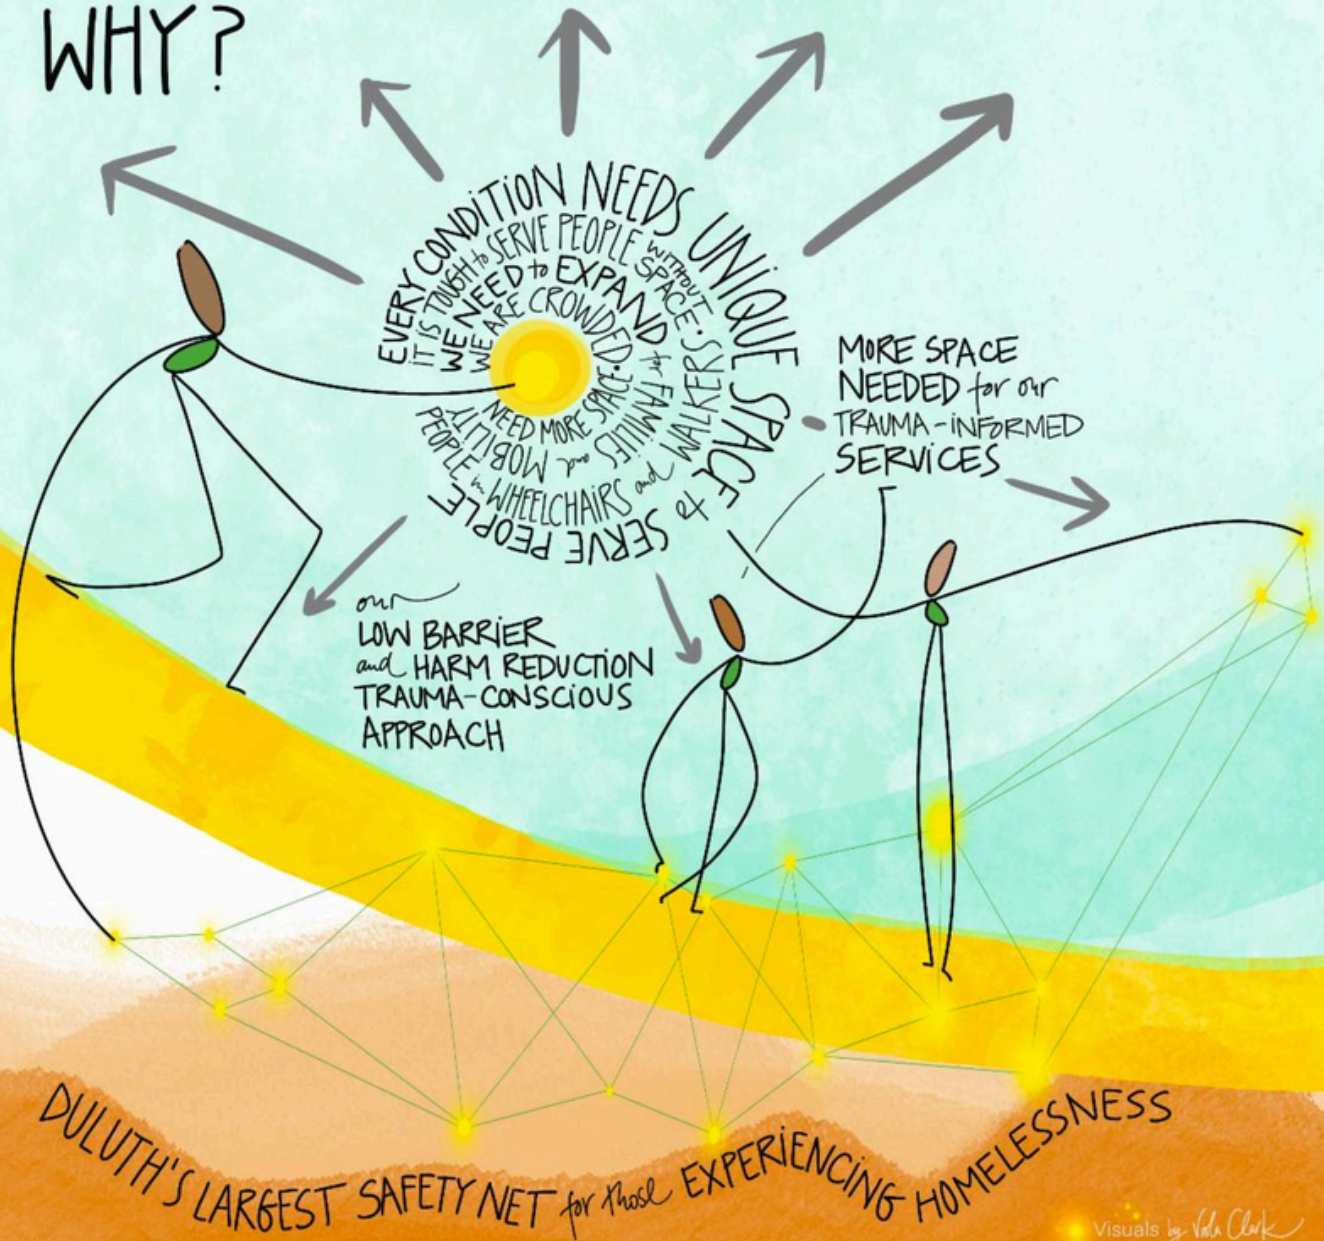 WHY?
EVERY CONDITION NEEDS UNIQUE SPACE to SERVE PEOPLE
IT IS TOUGH to SERVE PEOPLE WITHOUT SPACE. WALKERS and WHEELCHAIRS in PEOPLE
WE NEED to EXPAND for FAMILIES and MOBILITY
WE ARE CROWDED. NEED MORE SPACE.
MORE SPACE
NEEDED for our
TRAUMA-INFORMED
SERVICES
our
LOW BARRIER
and HARM REDUCTION
TRAUMA-CONSCIOUS
APPROACH
DULUTH'S LARGEST SAFETY NET for those EXPERIENCING HOMELESSNESS
Visuals by